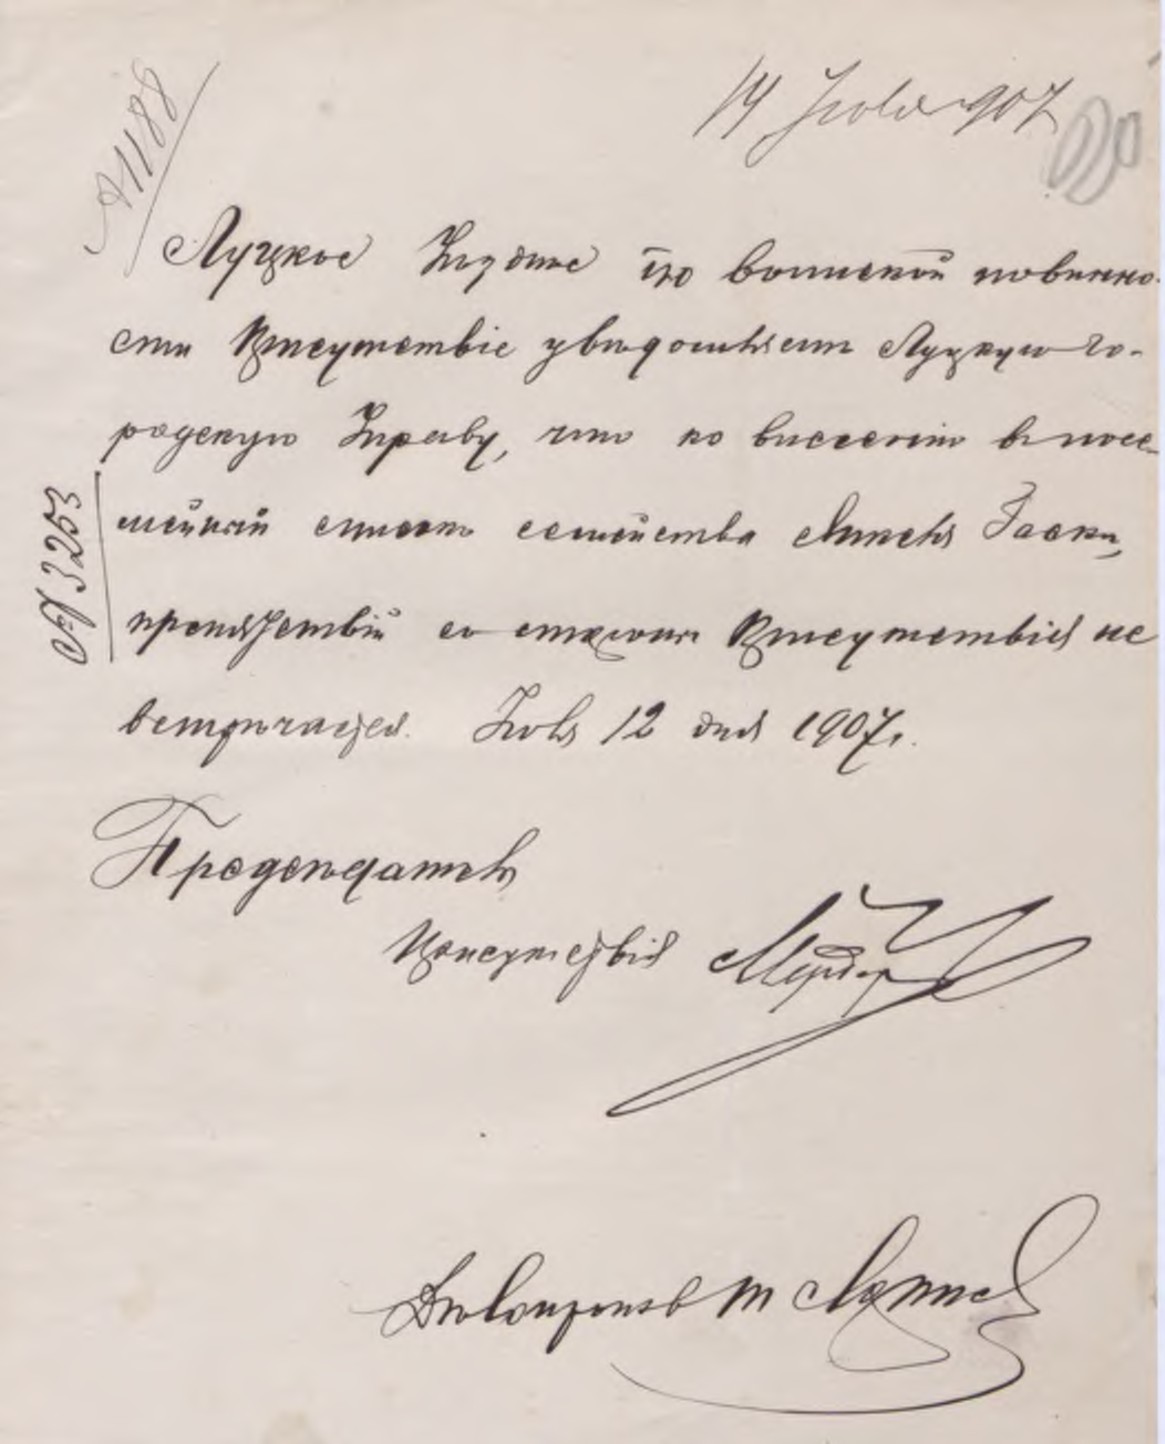 14 Июля 907
№1188
Луцкое Уѣздное по воинской повинно-
сти Присутствіе увѣдомляетъ Луцкую Го-
родскую Управу, что ко внесенію въ посе-
мейный списокъ семейства
№ 3253
препятствій со стороны Присутствія не
встрѣчается. Іюля 12 дня 1907г.
Предсѣдатель
Присутствія
Дѣлопроизв